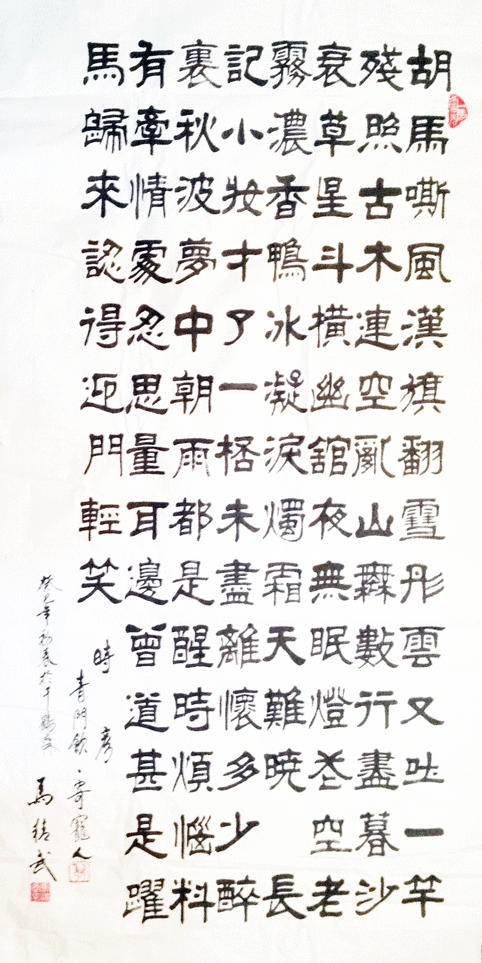 胡馬嘶風漢旗翻雪彤雲又吐一竿
殘照古木連空亂山無數行盡暮沙
衰草星斗橫幽館夜無眠燈花空老
霧濃香鴨冰凝淚燭霜天難曉長
記小妝才了一桮未盡離懷多少醉
裏秋波夢中朝雨都是醒時煩惱料
有牽情處忍思量耳邊曾道甚是躍
馬歸來認得迎門輕笑
時彥
青門飲·寄寵人
癸巳年初春於千
馬 武